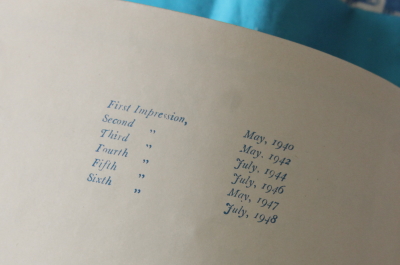 First Impression, May, 1940
Second " May. 1942
Third " July. 1944
Fourth " July, 1946
Fifth " May, 1947
Sixth " July, 1948